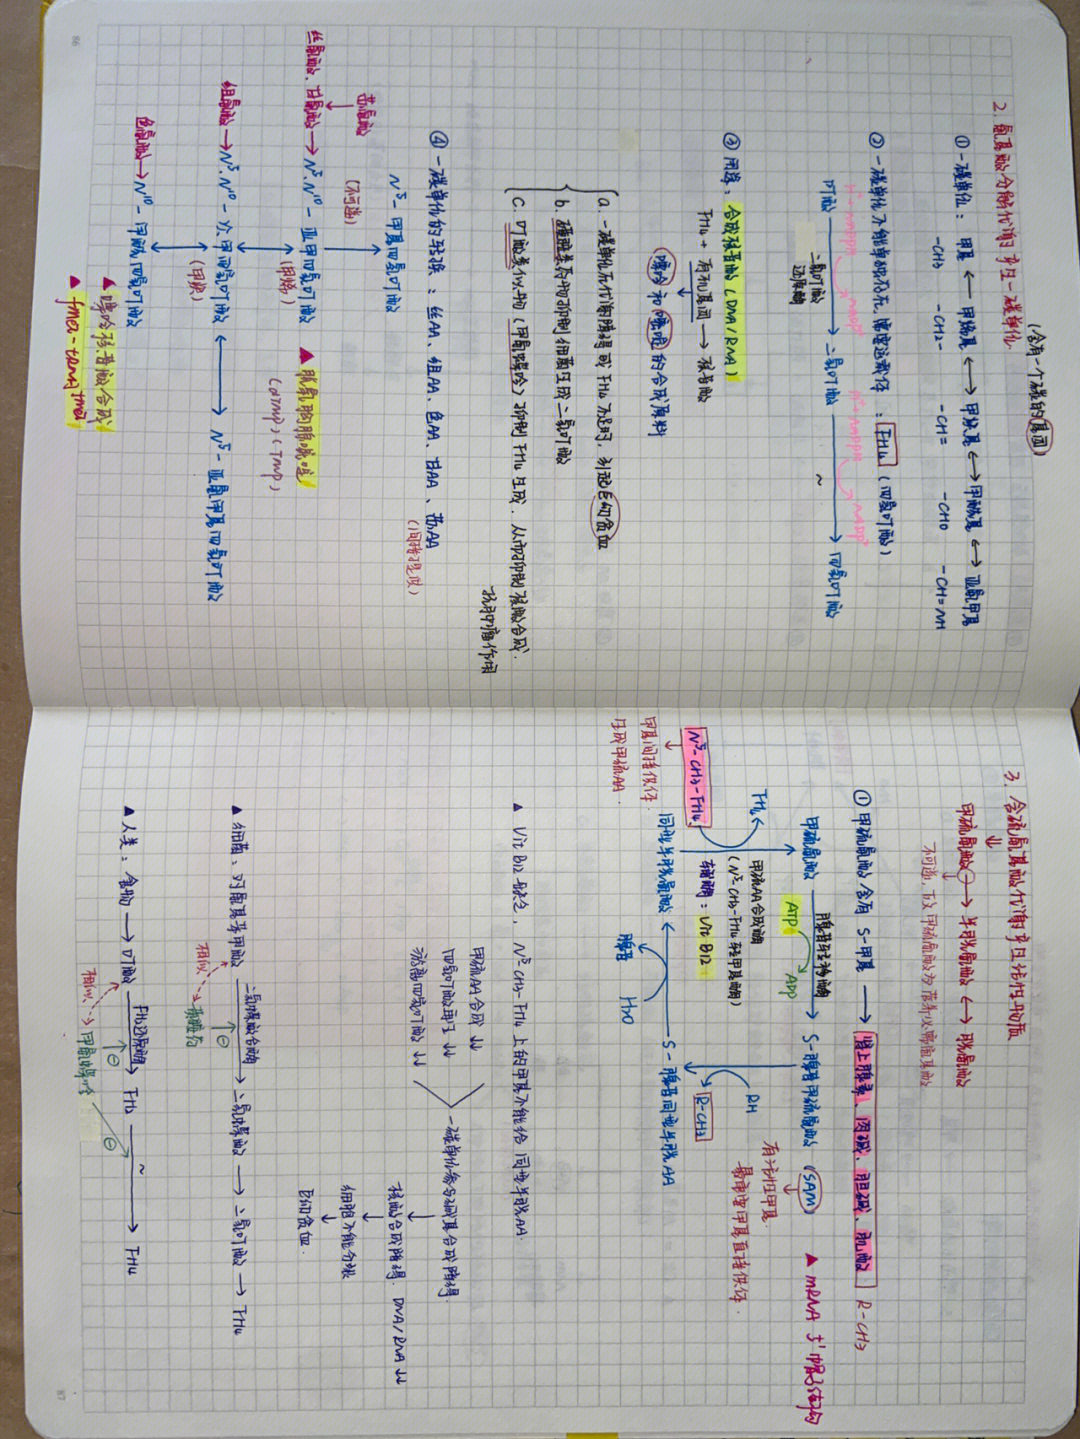 2. 氨基酸分解代谢产生一碳单位
(含有一个碳的基团)
① 一碳单位: 甲基 ⟷ 甲烯基 ⟷ 甲炔基 ⟷ 甲酰基 ⟷ 亚氨甲基
-CH3 -CH2- -CH= -CHO -CH=NH
② 一碳单位不能单独存在, 需要运载体: FH4 (四氢叶酸)
H⁺+NADPH NADP⁺ H⁺+NADPH NADP⁺
叶酸 → 二氢叶酸 → 四氢叶酸
二氢叶酸
还原酶
~
③ 用途: 合成核苷酸 (DNA/RNA)
FH4 + 有机基团 → 核苷酸
嘌呤和嘧啶的合成原料
a. 一碳单位代谢障碍或FH4不足时, 引起巨幼贫血
b. 磺胺类药物抑制细菌生成二氢叶酸
c. 叶酸类似物(甲氨蝶呤)抑制FH4生成, 从而抑制核酸合成.
抗肿瘤作用
④ 一碳单位的转换: 丝AA、组AA、色AA、甘AA、蛋AA
(间接提供)
N⁵-甲基四氢叶酸
(不可逆)
苏氨酸
丝氨酸、甘氨酸 → N⁵.N¹⁰-亚甲四氢叶酸 ▲ 脱氧胸腺嘧啶
(甲烯) (dTMP)(TMP)
组氨酸 → N⁵.N¹⁰-次甲四氢叶酸 ⟷ N⁵-亚氨甲基四氢叶酸
(甲炔)
色氨酸 → N¹⁰-甲酰四氢叶酸
▲ 嘌呤核苷酸合成
▲ fmet-tRNAfmet
86
3. 含硫氨基酸代谢产生活性物质
甲硫氨酸 → 半胱氨酸 ⟷ 胱氨酸
不可逆, 故甲硫氨酸为营养必需氨基酸
① 甲硫氨酸含有 S-甲基 → 肾上腺素、肉碱、胆碱、肌酸 R-CH3
▲ mRNA 5'帽子结构
甲硫氨酸 → S-腺苷甲硫氨酸 (SAM)
腺苷转移酶
ATP ADP
有活性甲基.
最重要甲基直接供体.
FH4
N⁵-CH3-FH4
甲硫AA合成酶
(N⁵-CH3-FH4转甲基酶)
辅酶: Vit B12
RH
R-CH3
甲基间接供体.
生成甲硫AA.
同型半胱氨酸 ← S-腺苷同型半胱AA
腺苷 H2O
▲ Vit B12缺乏, N⁵-CH3-FH4 上的甲基不能给同型半胱AA.
甲硫AA合成 ↓↓
四氢叶酸再生 ↓↓
游离四氢叶酸 ↓↓
一碳单位参与碱基合成障碍.
核酸合成障碍. DNA/RNA ↓↓
细胞不能分裂
巨幼贫血.
▲ 细菌: 对氨基苯甲酸 → 二氢蝶酸 → 二氢叶酸 → FH4
二氢蝶酸合酶
相似 ⊖
磺胺药
▲ 人类: 食物 → 叶酸 → FH2 → FH4
FH2还原酶 ~
相似 ⊖ ⊖
甲氨蝶呤
87